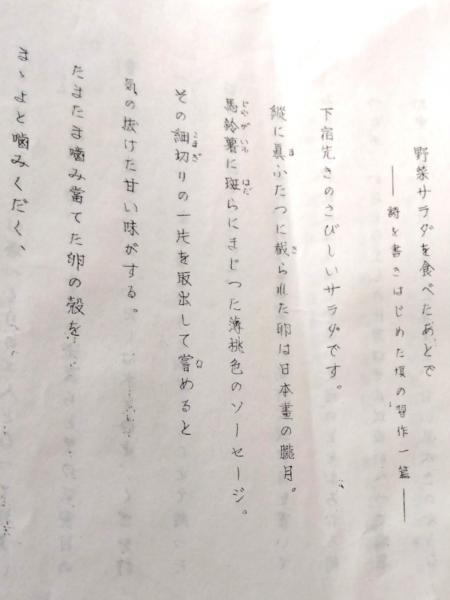 野菜サラダを食べたあとで
――詩を書きはじめた頃の習作一篇――
下宿先きのさびしいサラダです。
縦に真ふたつに截られた卵は日本畫の朧月。
馬鈴薯に斑らにまじつた薄桃色のソーセージ。
その細切りの一片を取出して嘗めると
気の抜けた甘い味がする。
たまたま噛み當てた卵の殻を
まゝよと噛みくだく、